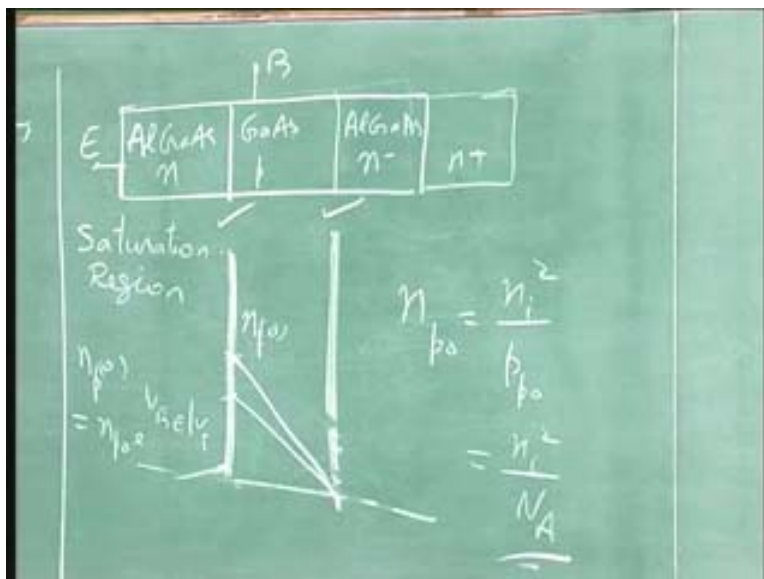 B
E AlGaAs GaAs AlGaAs
n p n- n+
Saturation
Region
n(o)
n_p(o)
= n_po e V_BE/V_T
n_po = n_i^2 / p_po
= n_i^2 / N_A